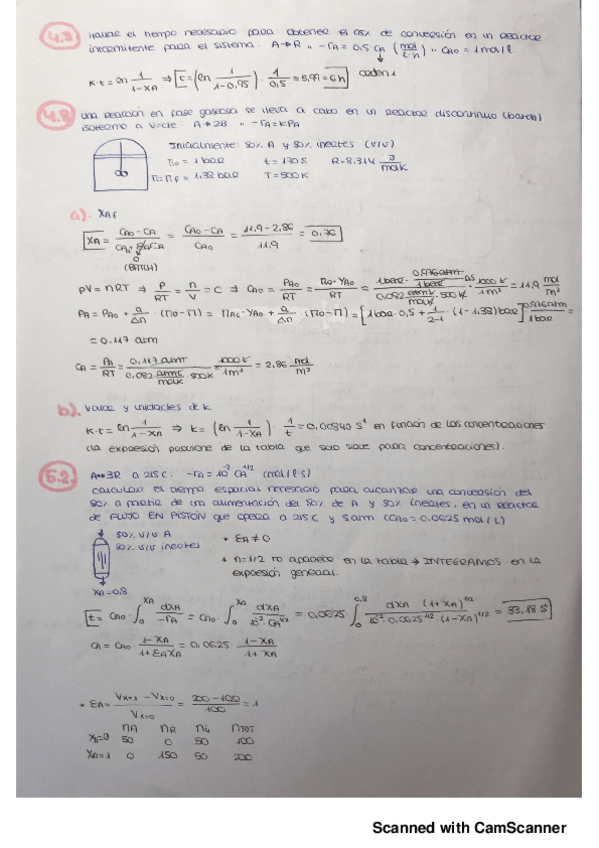 4.3 Hallar el tiempo necesario para obtener el 95% de conversión en un Reactor
intermitente para el sistema: A→R " -rA = 0,5 CA (mol/l·h) " CA0 = 1 mol/l.
K·t = ln 1/(1-XA) ⇒ t = (ln 1/(1-0,95)) · 1/0,5 = 5,99 = 6h orden 1
4.8 una Reacción en fase gaseosa se lleva a cabo en un Reactor discontinuo (batch)
isotermo a V=cte: A→2B " -rA = KPA
Inicialmente: 50% A y 50% inertes (v/v)
Π0 = 1 bar t = 130 s R = 8.314 J/molK
Π = ΠF = 1,38 bar T = 500K
a). XAf
XA = (CA0 - CA)/(CA0 + CA) = (CA0 - CA)/CA0 = (11,9 - 2,86)/11,9 = 0,76
0
(BATCH)
PV = nRT ⇒ P/RT = n/V = C ⇒ CA0 = PA0/RT = Π0·YA0/RT = 11,9 mol/m³
PA = PA0 + a/Δn · (Π0 - Π) = Π0·YA0 + a/Δn · (Π0 - Π) = [1 bar · 0,5 + 1/(2-1) · (1 - 1.38) bar] =
= 0.117 atm
CA = PA/RT = 2,86 mol/m³
b). Valor y unidades de k
K·t = ln 1/(1-XA) ⇒ k = (ln 1/(1-XA)) · 1/t = 0,00840 s⁻¹ en función de las concentraciones
(la expresión proviene de la tabla que solo sirve para concentraciones).
5.2 A→3R a 215C. -rA = 10⁻² CA^1/2 (mol/l·s)
calcular el tiempo espacial necesario para alcanzar una conversión del
80% a partir de una alimentación del 50% de A y 50% inertes, en un Reactor
de FLUJO EN PISTÓN que opera a 215C y 5atm (CA0 = 0.0625 mol/L)
50% v/v A
50% v/v inertes
XA = 0,8
* εA ≠ 0
* n = 1/2 no aparece en la tabla → INTEGRAMOS en la
expresión general.
t = CA0 · ∫₀^XA dXA/-rA = CA0 · ∫₀^XA dXA/(10⁻² CA^1/2) = 0,0625 ∫₀^0,8 dXA (1+XA)^1/2/(10⁻² 0,0625^1/2 (1-XA)^1/2) = 33,18 S
CA = CA0 · (1-XA)/(1+εAXA) = 0,0625 (1-XA)/(1+XA)
* εA = (Vx=1 - Vx=0)/Vx=0 = (200-100)/100 = 1
nA nR nI nTOT
XA=0 50 0 50 100
XA=1 0 150 50 200
Scanned with CamScanner